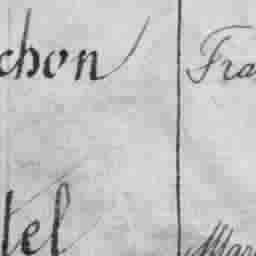 chon Fra
tel Mar